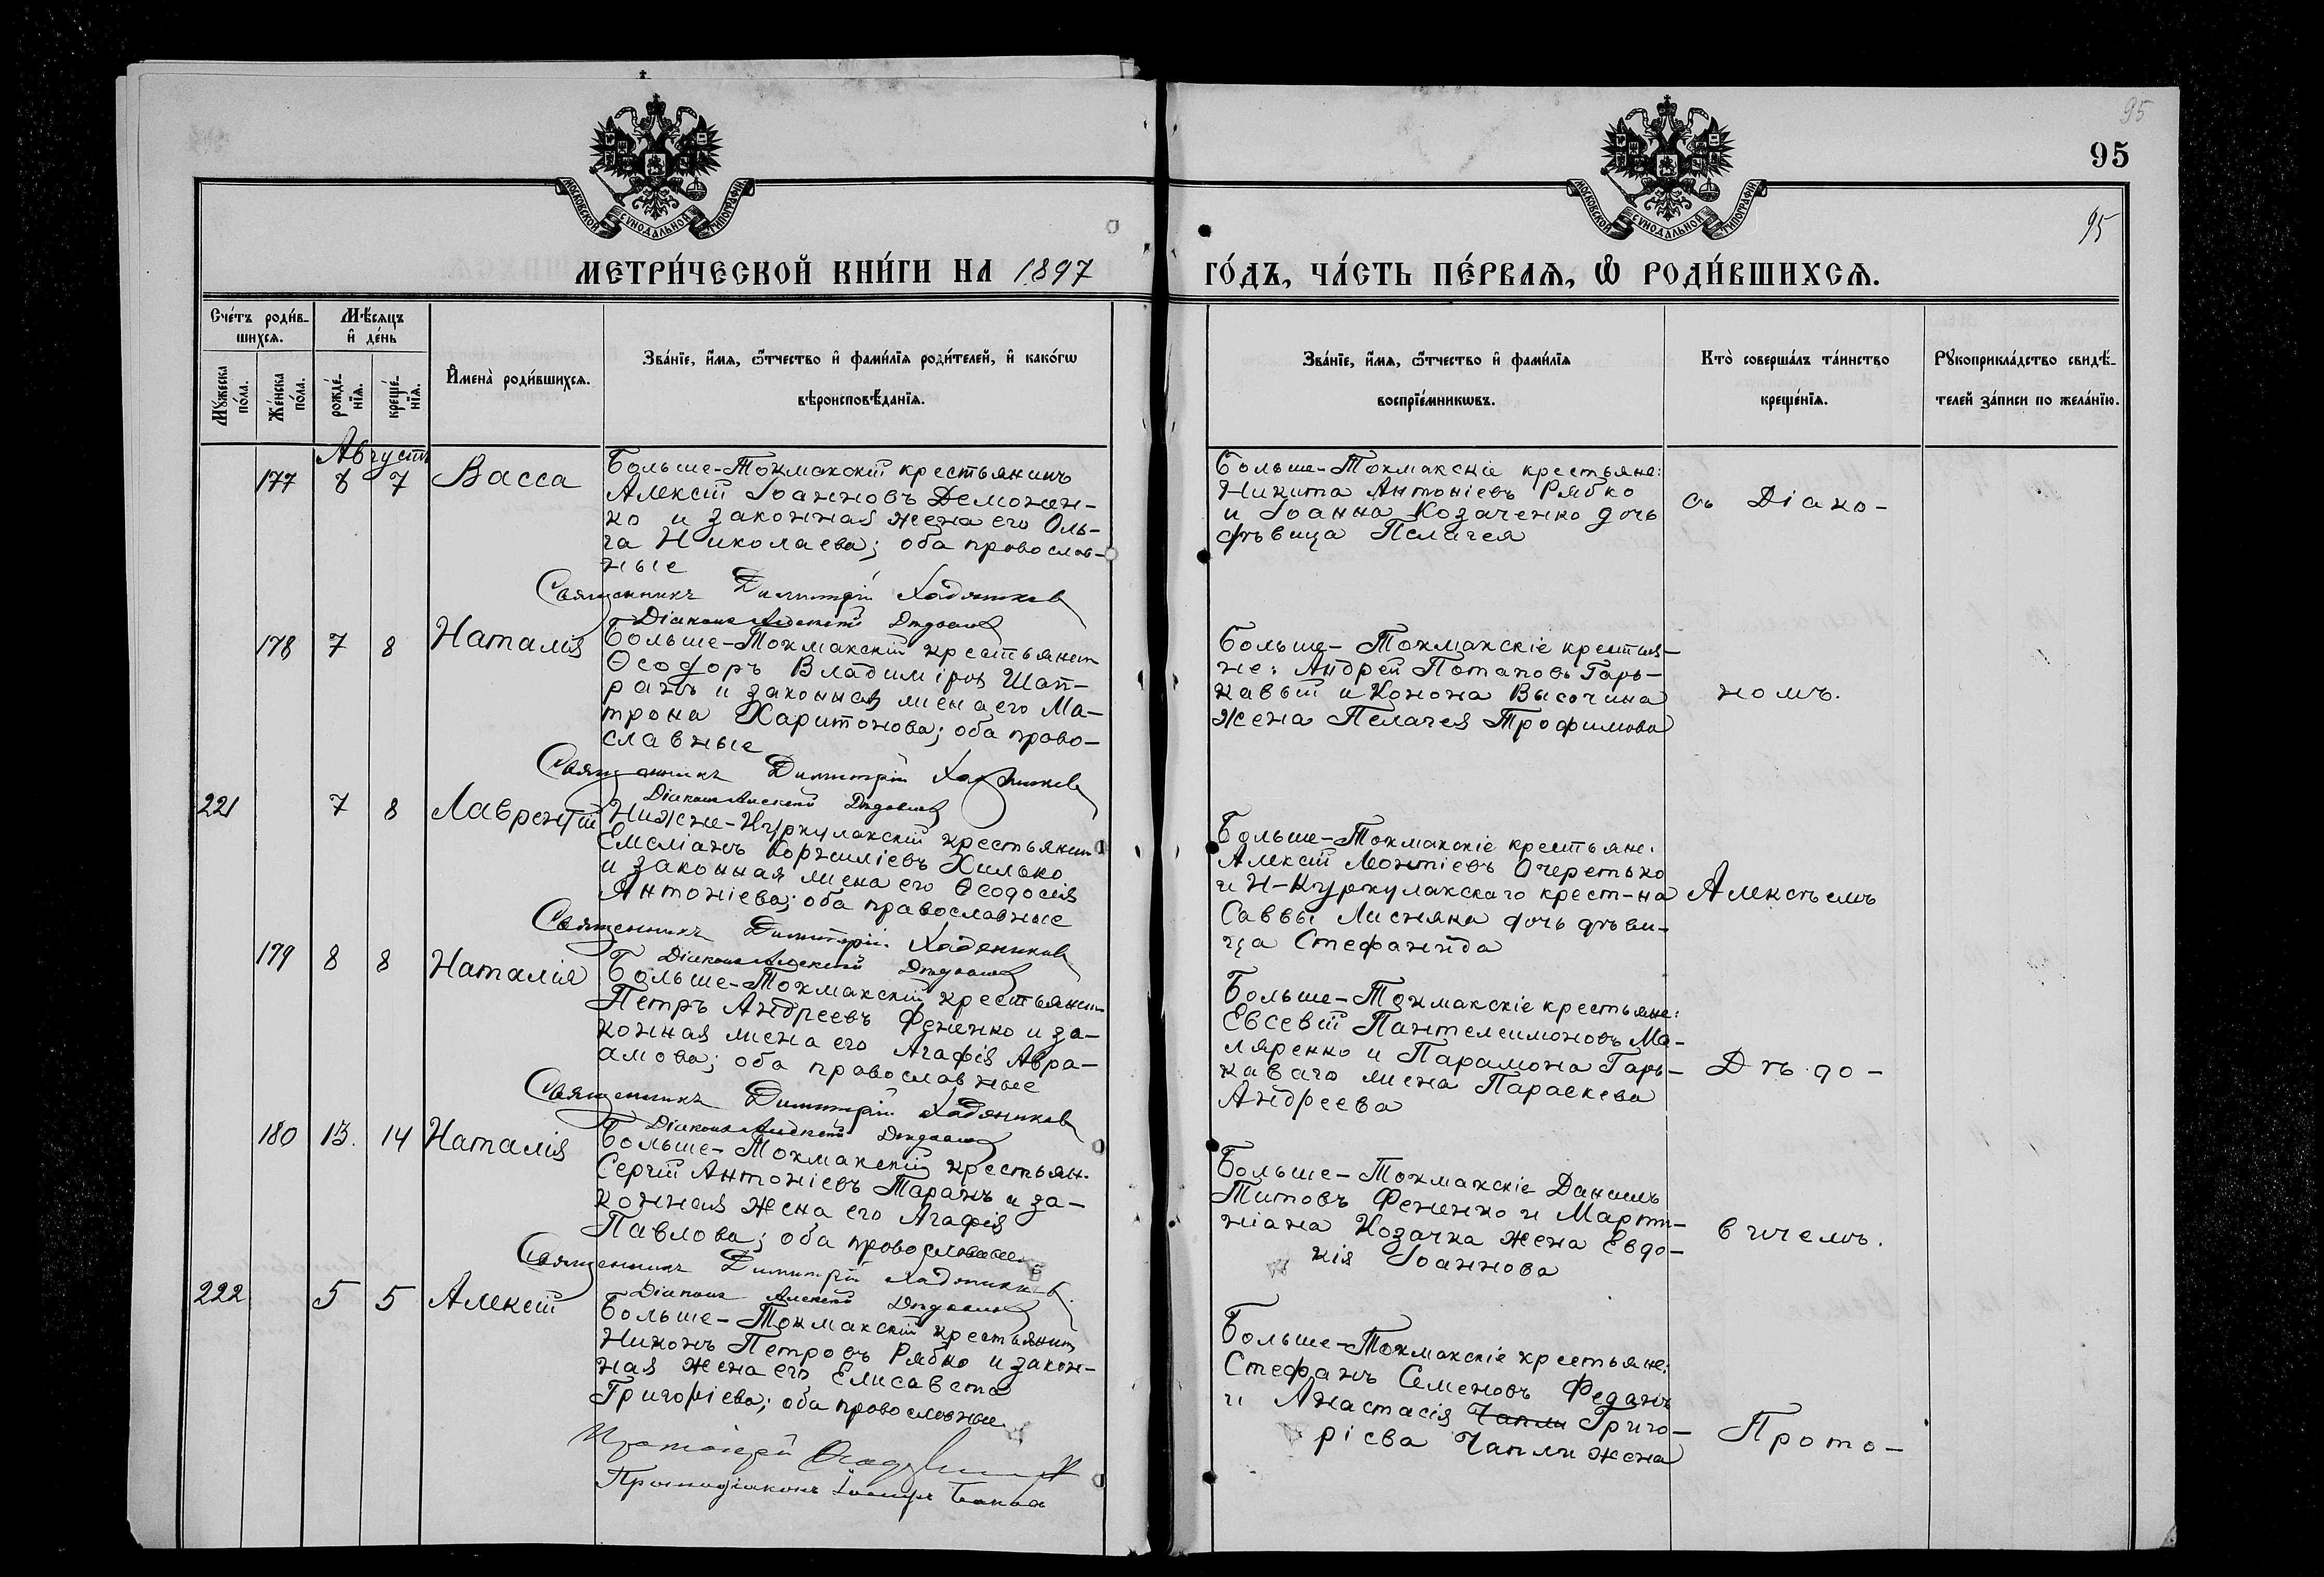 95
95
95
МОСКОВСКОЙ СУНОДАЛЬНОЙ ТИПОГРАФІИ
МОСКОВСКОЙ СУНОДАЛЬНОЙ ТИПОГРАФІИ
МЕТРИ́ЧЕСКОЙ КНИ́ГИ НА 1897
ГО́ДЪ, ЧА́СТЬ ПЕ́РВАѦ, Ѡ РОДИ́ВШИХСѦ.
Сче́тъ роди́в-
шихсѧ.
Мꙋ́жеска по́ла.
Же́нска по́ла.
Мѣ́сѧцъ
и҆ де́нь
рожде́-нїѧ.
креще́-нїѧ.
И҆мена̀ роди́вшихсѧ.
Зва́нїе, и҆́мѧ, ѻ҆́тчество и҆ фами́лїѧ роди́телей, и҆ како́гѡ
вѣроисповѣ́данїѧ.
Зва́нїе, и҆́мѧ, ѻ҆́тчество и҆ фами́лїѧ
воспрїе́мникѡвъ.
Кто̀ соверша́лъ та́инство
креще́нїѧ.
Рꙋкоприкла́дство свидѣ́-
телей за́писи по жела́нїю.
Августъ
177 6 7 Васса
Больше-Токмакскій крестьянинъ
Алексій Іоанновъ Демонен-
ко и законная жена его Оль-
га Николаева; оба православ-
ные
Священникъ Димитрій
Діаконъ Алексій
Больше-Токмакскіе крестьяне:
Никита Антоніевъ Рябко
и Іоанна Козаченко дочь
дѣвица Пелагея
съ Діако-
178 7 8 Наталія
Больше-Токмакскій крестьянин
Ѳеодоръ Владиміров Шап-
ранъ и законная жена его Ма-
трона Харитонова; оба право-
славные
Священникъ Димитрій
Діаконъ Алексій
Больше-Токмакскіе крестья-
не: Андрей Потаповъ Гарь-
кавый и Конона Высочина
жена Пелагея Трофимова
номъ.
221 7 8 Лаврентій
Нижне-Куркулакскій крестьянин
Емеліанъ Корниліевъ Хилько
и законная жена его Ѳеодосія
Антоніева; оба православные
Священникъ Димитрій
Діаконъ Алексій
Больше-Токмакскіе крестьяне:
Алексій Леонтіевъ Очеретько
и Н-Куркулакскаго крест-на
Саввы Лисняка дочь дѣви-
ца Стефанида
Алексѣемъ
179 8 8 Наталія
Больше-Токмакскій крестьянин
Петръ Андреевъ Фененко и за-
конная жена его Агафія Авра-
амова; оба православные
Священникъ Димитрій
Діаконъ Алексій
Больше-Токмакскіе крестьяне:
Евсевій Пантелеимоновъ Ма-
ляренко и Парамона Гарь-
каваго жена Параскева
Андреева
Дѣдо-
180 13. 14 Наталія
Больше-Токмакскій крестьян.
Сергій Антоніевъ Таранъ и за-
конная жена его Агафія
Павлова; оба православные
Священникъ Димитрій
Діаконъ Алексій
Больше-Токмакскіе Даниилъ
Титовъ Фененко и Марти-
ніана Козачка жена Евдо-
кія Іоаннова
вичемъ.
222 5 5 Алексій
Больше-Токмакскій крестьянин
Никонъ Петровъ Рябко и закон-
ная жена его Елисавета
Григоріева; оба православные
Протоіерей
Протодіаконъ
Больше-Токмакскіе крестьяне:
Стефанъ Семеновъ Феданъ
и Анастасія Чапли Григо-
ріева Чапли жена
Прото-